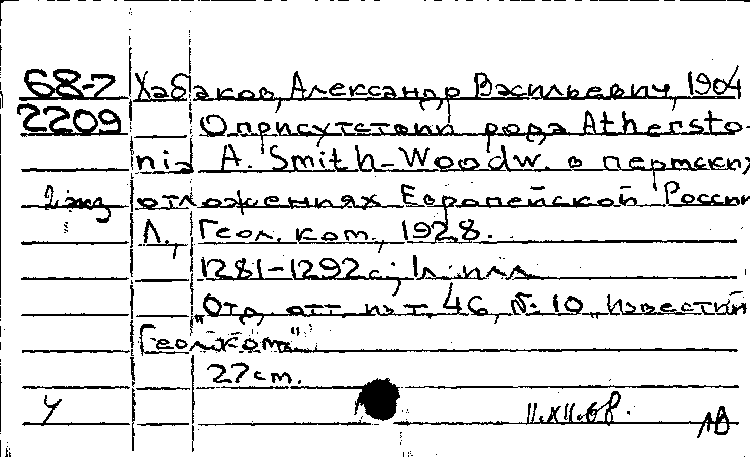 68-7 Хабаков, Александр Васильевич, 1904
2209 О присутствии рода Athersto-
nia A. Smith-Woodw. в пермских
2 экз отложениях Европейской России
Л., Геол. ком., 1928.
1281-1292 с.; 1 л. илл.
„Отд. отт. из т. 46, № 10 „Известий
Геол. кома"
27 cm.
Ч 11.XII.68.